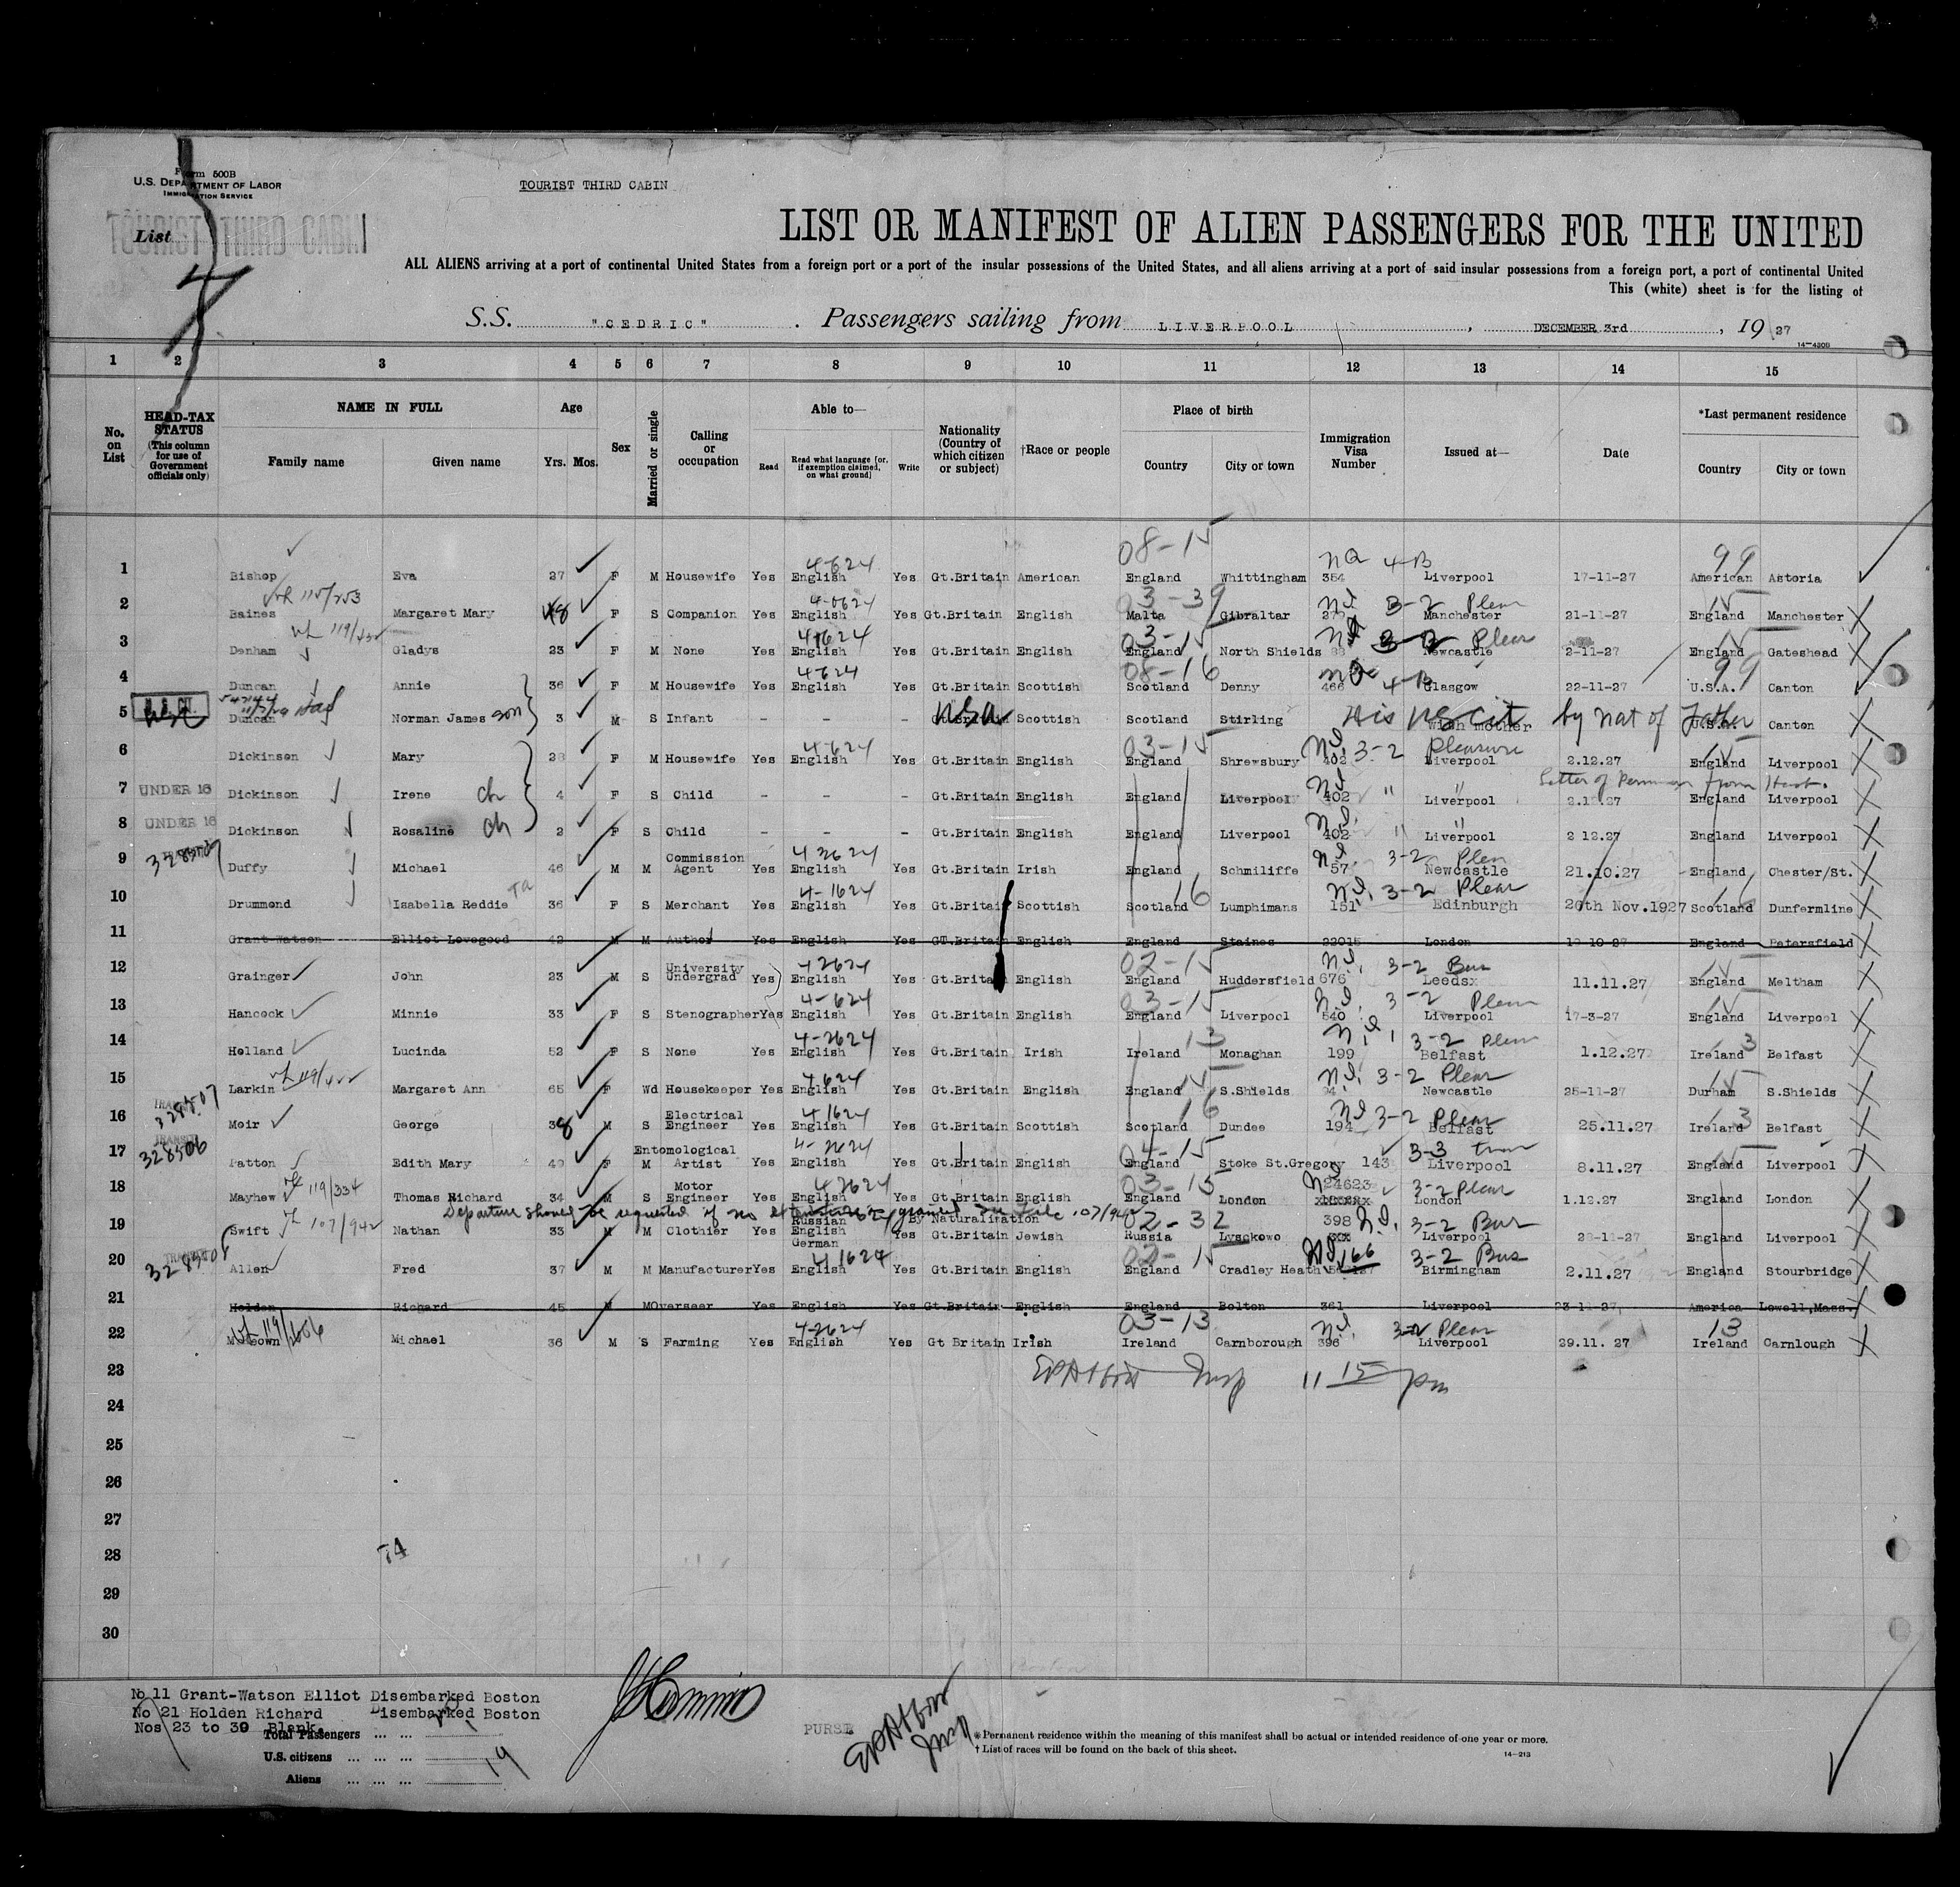 Form 500B
U.S. DEPARTMENT OF LABOR
IMMIGRATION SERVICE
TOURIST THIRD CABIN
TOURIST THIRD CABIN
List
4
LIST OR MANIFEST OF ALIEN PASSENGERS FOR THE UNITED
ALL ALIENS arriving at a port of continental United States from a foreign port or a port of the insular possessions of the United States, and all aliens arriving at a port of said insular possessions from a foreign port, a port of continental United
This (white) sheet is for the listing of
S.S. "CEDRIC". Passengers sailing from LIVERPOOL, DECEMBER 3rd, 1927
14-4300
1 2 3 4 5 6 7 8 9 10 11 12 13 14 15
No. on List
HEAD-TAX STATUS (This column for use of Government officials only)
NAME IN FULL Family name Given name
Age Yrs. Mos.
Sex
Married or single
Calling or occupation
Able to— Read Read what language [or, if exemption claimed, on what ground] Write
Nationality (Country of which citizen or subject)
†Race or people
Place of birth Country City or town
Immigration Visa Number
Issued at—
Date
*Last permanent residence Country City or town
08-15 99
1 Bishop Eva 27 F M Housewife Yes 4-624 English Yes Gt.Britain American England Whittingham 354 na 4-B Liverpool 17-11-27 American Astoria
115/253
2 Baines Margaret Mary 48 F S Companion Yes English Yes Gt.Britain English 03-39 Malta Gibraltar 3-2 Pleas Manchester 21-11-27 England 15 Manchester
3 Denham Gladys 23 F M None Yes 4-624 English Yes Gt.Britain English 03-15 England North Shields 88 Pleas Newcastle 2-11-27 England 15 Gateshead
4 Duncan Annie 36 F M Housewife Yes 4-624 English Yes Gt.Britain Scottish 08-16 Scotland Denny 466 4-B Glasgow 22-11-27 U.S.A. 99 Canton
5 Duncan Norman James son 3 M S Infant - - - USA Scottish Scotland Stirling His US Cit by Nat of Father With mother U.S.A. Canton
6 Dickinson Mary 28 F M Housewife Yes 4-624 English Yes Gt.Britain English 03-15 England Shrewsbury 402 3-2 Pleasure Liverpool 2.12.27 England 15 Liverpool
7 UNDER 16 Dickinson Irene ch 4 F S Child - - - Gt.Britain English England Liverpool 402 " " Liverpool 2.12.27 England Liverpool
8 UNDER 16 Dickinson Rosaline ch 2 F S Child - - - Gt.Britain English England Liverpool 402 " " Liverpool 2 12.27 England Liverpool
9 Duffy Michael 46 M M Commission Agent Yes English Yes Gt.Britain Irish England Schmiliffe 57 3-2 Pleas Newcastle 21.10.27 England Chester/St.
10 Drummond Isabella Reddie 36 F S Merchant Yes 4-1624 English Yes Gt.Britain Scottish Scotland 16 Lumphimans 151 3-2 Pleas Edinburgh 20th Nov.1927 Scotland 16 Dunfermline
11 Grant-Watson Elliot Lovegood 42 M M Author Yes English Yes GT.Britain English England Staines 22015 London England Petersfield
12 Grainger John 23 M S University Undergrad Yes 42624 English Yes Gt.Britain English 02-15 England Huddersfield 676 3-2 Bus Leedsx 11.11.27 England 15 Meltham
13 Hancock Minnie 33 F S Stenographer Yes 4-624 English Yes Gt.Britain English 03-15 England Liverpool 540 3-2 Pleas Liverpool 17-3-27 England 15 Liverpool
14 Holland Lucinda 52 F S None Yes 4-2624 English Yes Gt.Britain Irish Ireland 13 Monaghan 199 3-2 Pleas Belfast 1.12.27 Ireland 3 Belfast
15 Larkin Margaret Ann 65 F Wd Housekeeper Yes 4624 English Yes Gt.Britain English England 15 S.Shields 3-2 Pleas Newcastle 25-11-27 Durham 15 S.Shields
328507
16 Moir George 38 M S Electrical Engineer Yes 41624 English Yes Gt.Britain Scottish Scotland 16 Dundee 194 3-2 Pleas Belfast 25.11.27 Ireland 3 Belfast
TRANSIT 328506
17 Patton Edith Mary F M Entomological Artist Yes 4-2624 English Yes Gt.Britain English 04-15 England Stoke St.Gregory 143 3-3 Tran Liverpool 8.11.27 England 15 Liverpool
119/334
18 Mayhew Thomas Richard 34 M S Motor Engineer Yes English Yes Gt.Britain English 03-15 England London 24623 3-2 Pleas London 1.12.27 England London
Departure should be requested if no extension is granted See file 107/942
19 Swift 107/942 Nathan 33 M M Clothier Yes Russian English German Yes By Naturalization Gt.Britain Jewish 02-32 Russia Lysckowo 398 3-2 Bus Liverpool England Liverpool
20 Allen Fred 37 M M Manufacturer Yes 41624 English Yes Gt.Britain English 02-15 England Cradley Heath 166 3-2 Bus Birmingham 2.11.27 England Stourbridge
21 Holden Richard 45 M M Overseer Yes English Yes Gt.Britain English England Bolton 361 Liverpool 23-11-27 America Lowell,Mass.
22 Michael 36 M S Farming Yes 4-2624 English Yes Gt Britain Irish 03-13 Ireland Carnborough 396 3-2 Pleas Liverpool 29.11. 27 13 Ireland Carnlough
23 11 15 pm
24
25
26
27
28
29
30
No 11 Grant-Watson Elliot Disembarked Boston
No 21 Holden Richard Disembarked Boston
Nos 23 to 30 Blank.
Total Passengers ... ...
U.S. citizens ... ... ...
Aliens ... ... ... 19
PURSER
*Permanent residence within the meaning of this manifest shall be actual or intended residence of one year or more.
†List of races will be found on the back of this sheet.
14-213